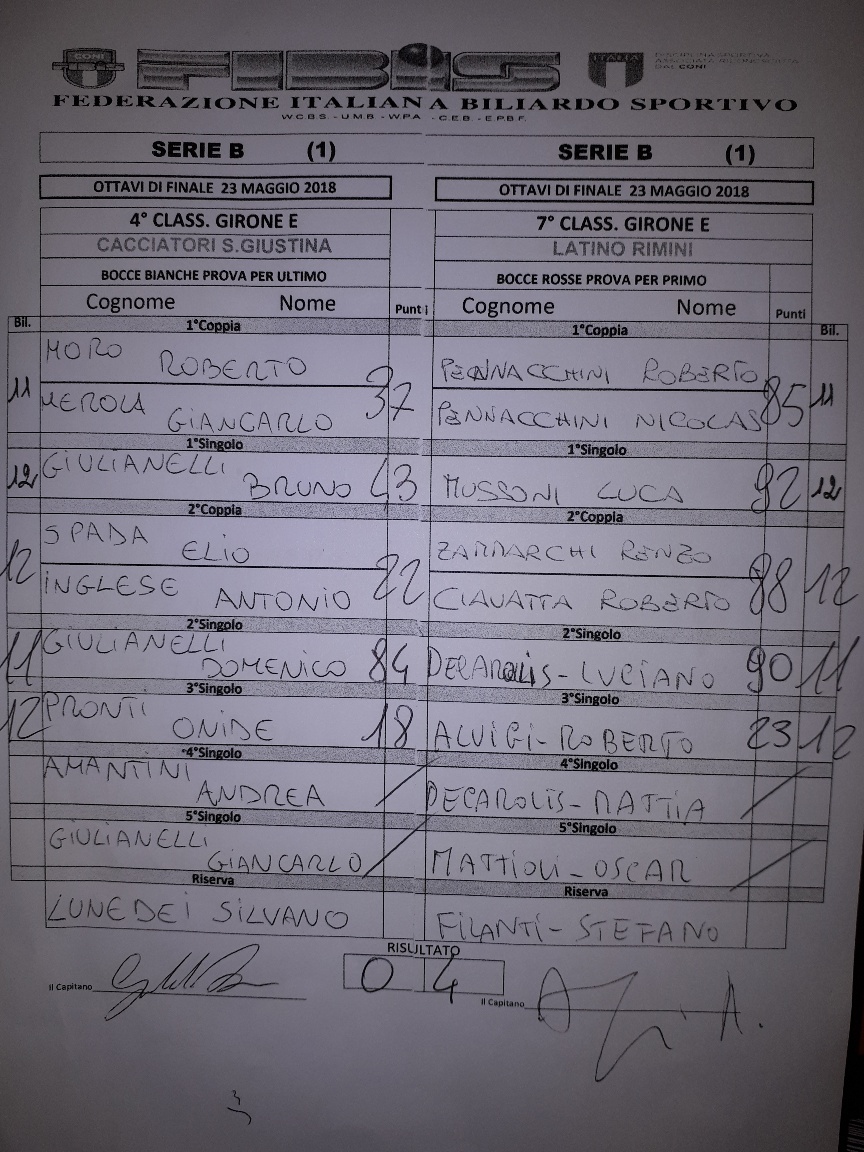 CONI FIBiS ITALIA
FEDERAZIONE ITALIANA BILIARDO SPORTIVO
W.C.B.S. - U.M.B. - W.P.A. - C.E.B. - E.P.B.F.
SERIE B (1) SERIE B (1)
OTTAVI DI FINALE 23 MAGGIO 2018 OTTAVI DI FINALE 23 MAGGIO 2018
4° CLASS. GIRONE E 7° CLASS. GIRONE E
CACCIATORI S.GIUSTINA LATINO RIMINI
BOCCE BIANCHE PROVA PER ULTIMO BOCCE ROSSE PROVA PER PRIMO
Cognome Nome Punti Cognome Nome Punti
Bil. 1°Coppia 1°Coppia Bil.
MORO ROBERTO PENNACCHINI ROBERTO
11 37 85 11
MEROLA GIANCARLO PENNACCHINI NICOLAS
1°Singolo 1°Singolo
12 GIULIANELLI BRUNO 43 MUSSONI LUCA 92 12
2°Coppia 2°Coppia
SPADA ELIO ZAMMARCHI RENZO
12 22 88 12
INGLESE ANTONIO CIAVATTA ROBERTO
2°Singolo 2°Singolo
11 GIULIANELLI DOMENICO 84 DECAROLIS-LUCIANO 90 11
3°Singolo 3°Singolo
12 PRONTI ONIDE 18 ALVIGI-ROBERTO 23 12
4°Singolo 4°Singolo
AMANTINI ANDREA / DECAROLIS-MATTIA /
5°Singolo 5°Singolo
GIULIANELLI GIANCARLO / MATTIOLI-OSCAR /
Riserva Riserva
LUNEDEI SILVANO FILANTI-STEFANO
RISULTATO
Il Capitano 0 4 Il Capitano